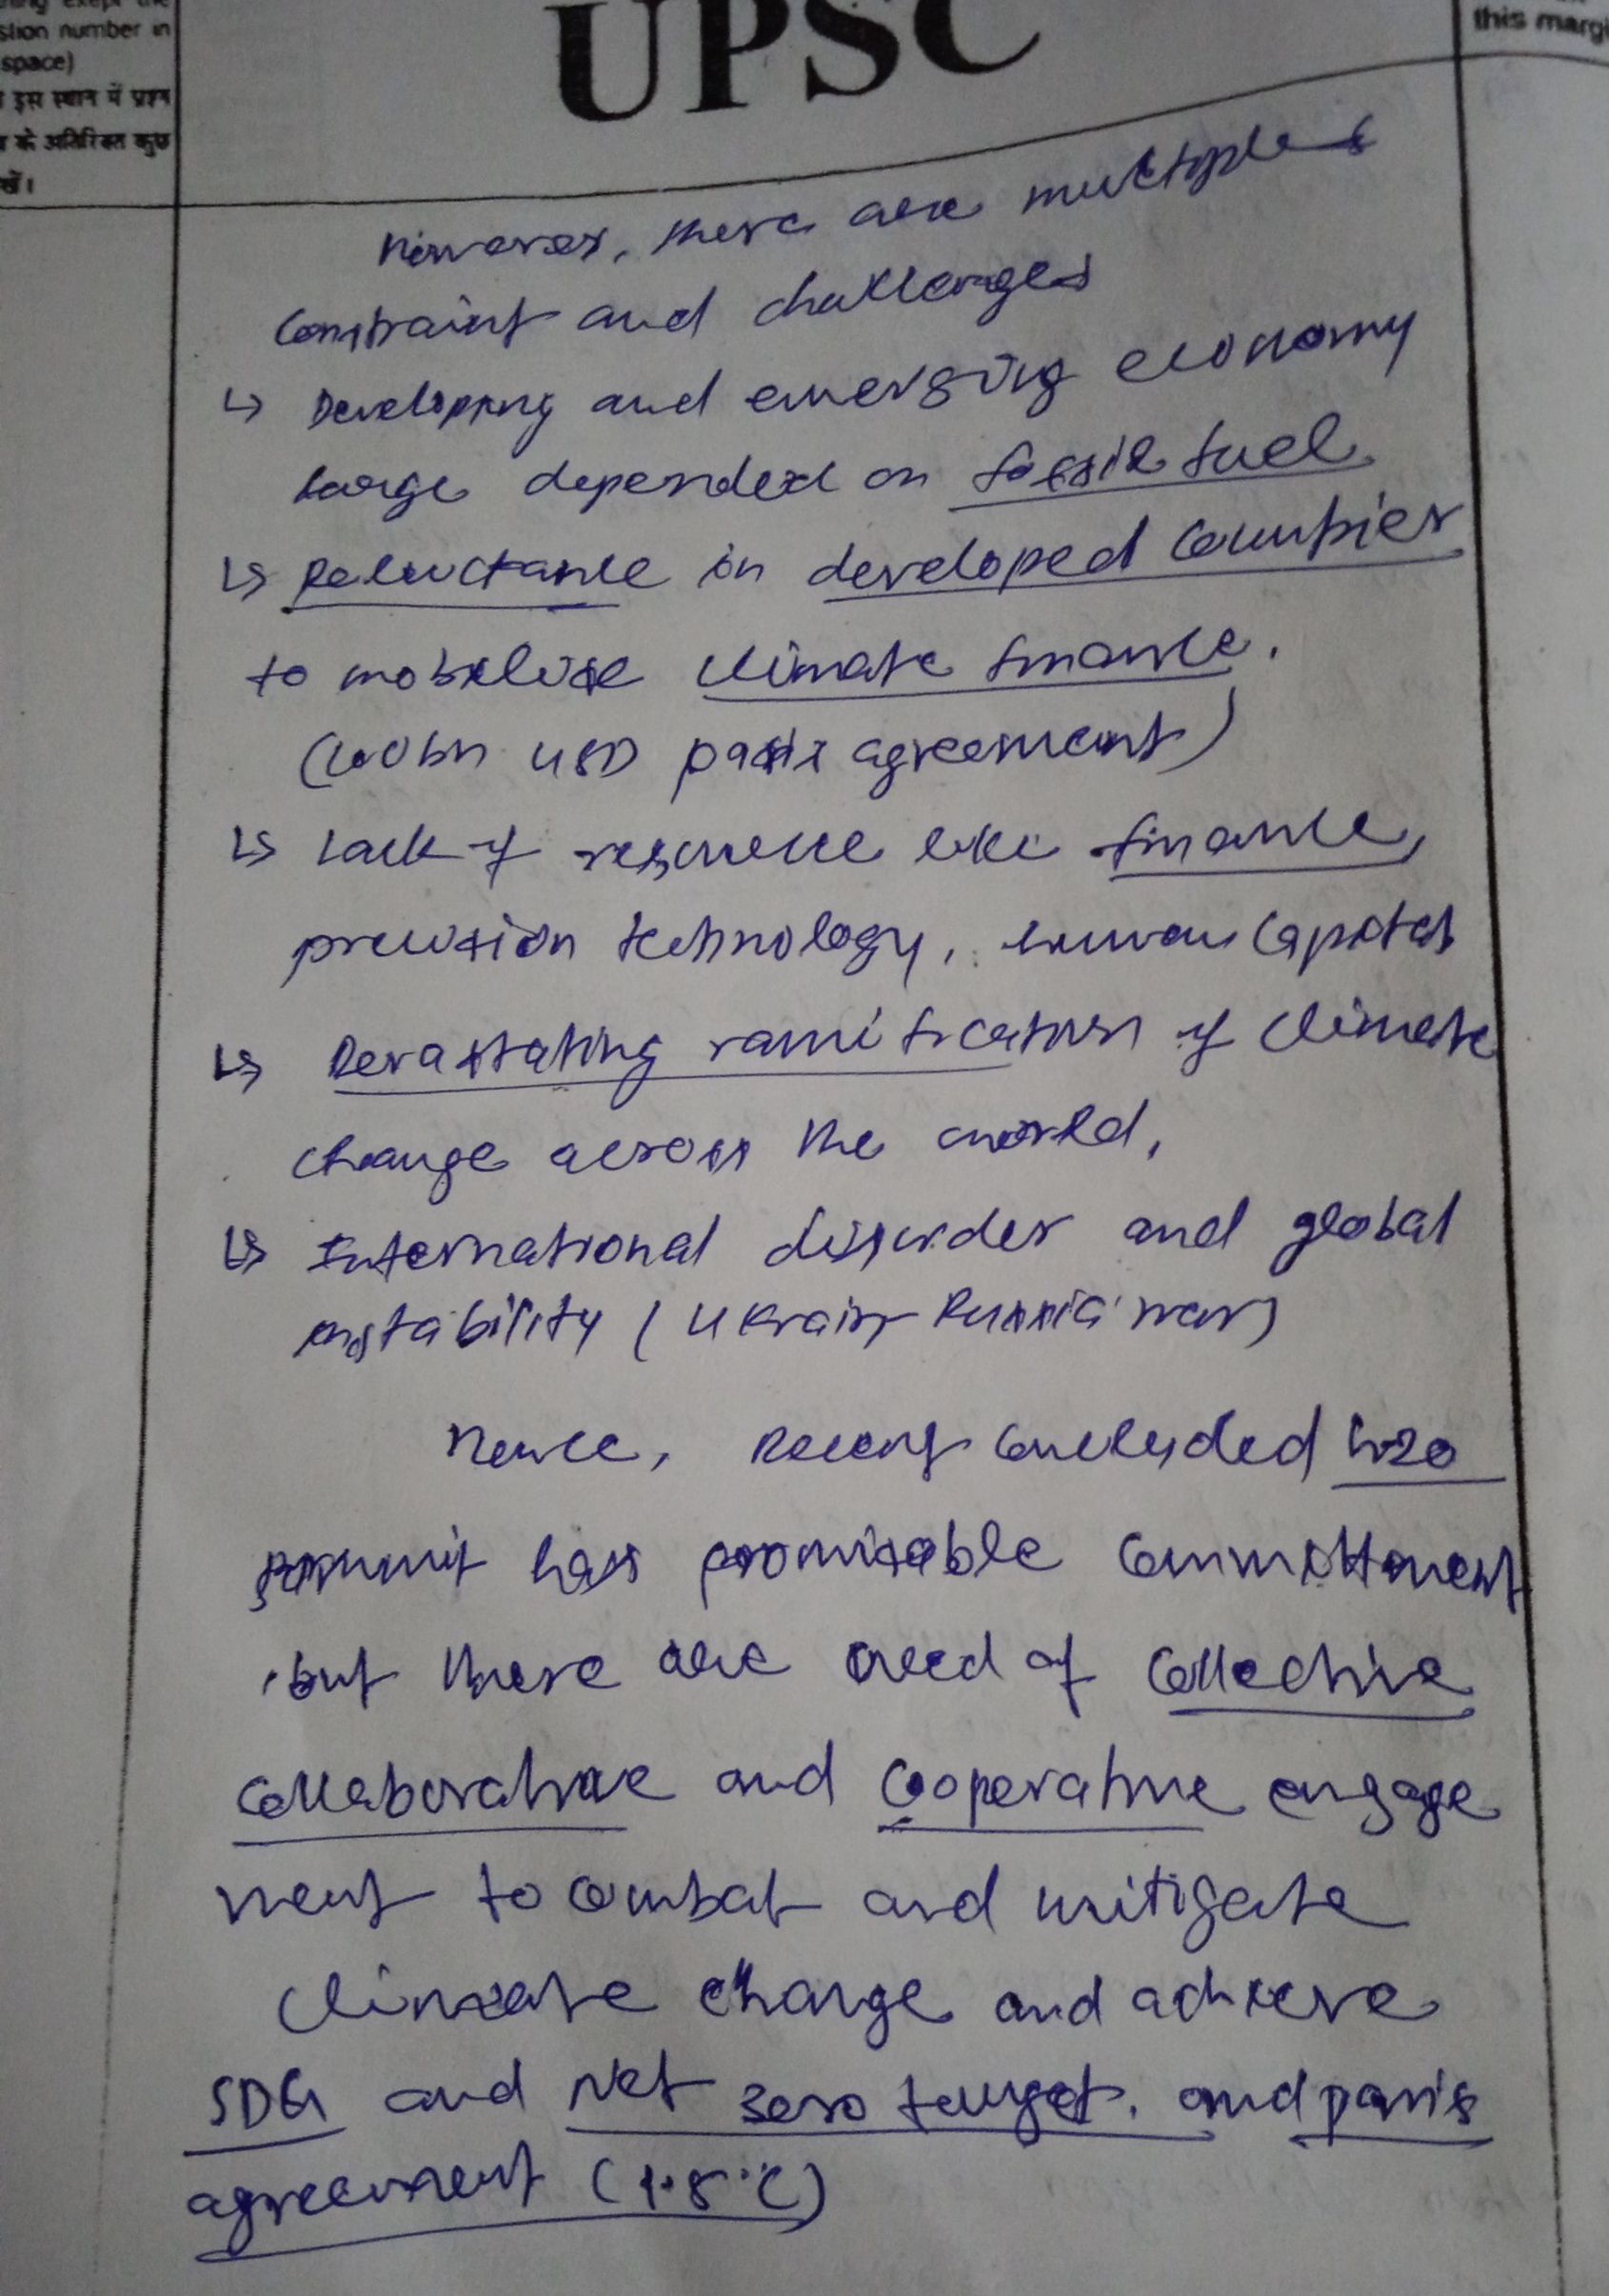 stion number in
space)
इस स्थान में प्रश्न
के अतिरिक्त कुछ
UPSC
this marg
However, there are multiple
constraint and challenges
↳ Developing and emerging economy
large depended on fossil fuel
↳ Reluctance in developed countries
to mobilise climate finance.
(100bn USD paris agreement)
↳ Lack of resource like finance,
precision technology, human capital
↳ Devastating ramification of climate
change across the world,
↳ International disorder and global
instability (Ukrain Russia war)
Hence, Recent concluded G20
summit has promisable committment
but there are need of collective
collaborative and cooperative engage
ment to combat and mitigate
climate change and achieve
SDG and Net zero target. and paris
agreement (1.5°C)